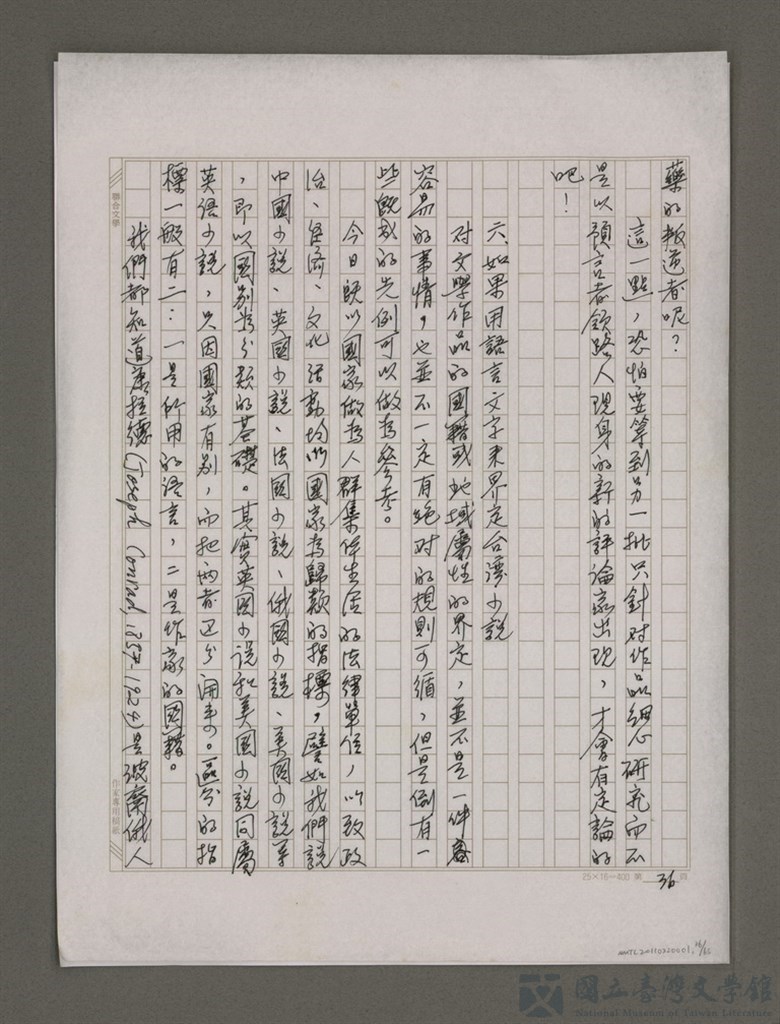 藥的叛逆者呢？
這一點，恐怕要等到另一批只針對作品細心研究而不
是以預言者領路人現身的新的評論家出現，才會有定論的
吧！
六、如果用語言文字來界定台灣小說
對文學作品的國籍或地域屬性的界定，並不是一件
容易的事情，也並不一定有絕對的規則可循，但是倒有一
些既成的先例可以做為參考。
今日既以國家做為人群集体生活的法律單位，以致政
治、經濟、文化活動均以國家為歸類的指標，譬如我們說
中國小說、英國小說、法國小說、俄國小說、美國小說等
，即以國別為分類的基礎。其實英國小說和美國小說同屬
英語小說，只因國家有別，而把兩者区分開來。區分的指
標一般有二：一是所用的語言，二是作家的國籍。
我們都知道康拉德(Joseph Conrad, 1857-1924)是波裔俄人
聯合文學
作家專用稿紙
25×16=400 第 36 頁
NMTL20110320001, 
國立臺灣文學館
National Museum of Taiwan Literature